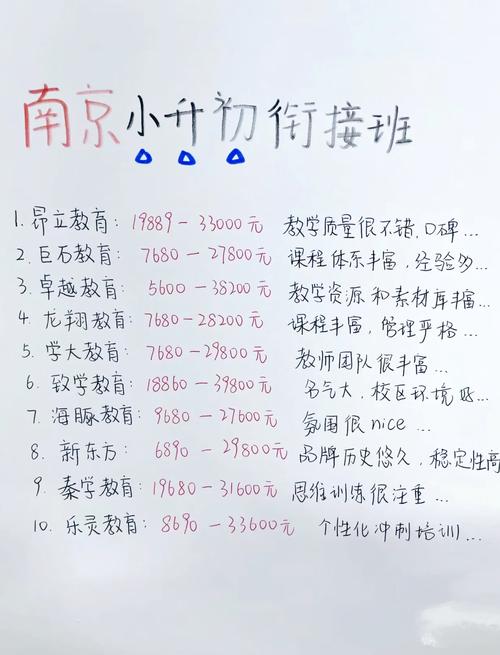 南京小升初衔接班
1. 昂立教育: 19889-33000元 教学质量很不错,口碑...
2. 巨石教育: 7680-27800元 课程体系丰富,经验多...
3. 卓越教育: 5600-38200元 教学资源和素材库丰富...
4. 龙翔教育: 7680-28200元 课程丰富,管理严格...
5. 学大教育: 7680-29800元 教师团队很丰富...
6. 致学教育: 18860-39800元 名气大,校区环境好...
7. 海豚教育: 9680-27600元 氛围很nice...
8. 新东方: 6890-29800元 品牌历史悠久,稳定性高
9. 秦学教育: 19680-31600元 思维训练很注重...
10. 乐灵教育: 8690-33600元 个性化冲刺培训...